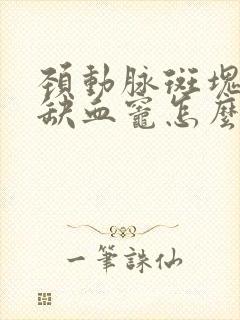 頚動脉斑塊
缺血竈怎麽
一筆誅仙